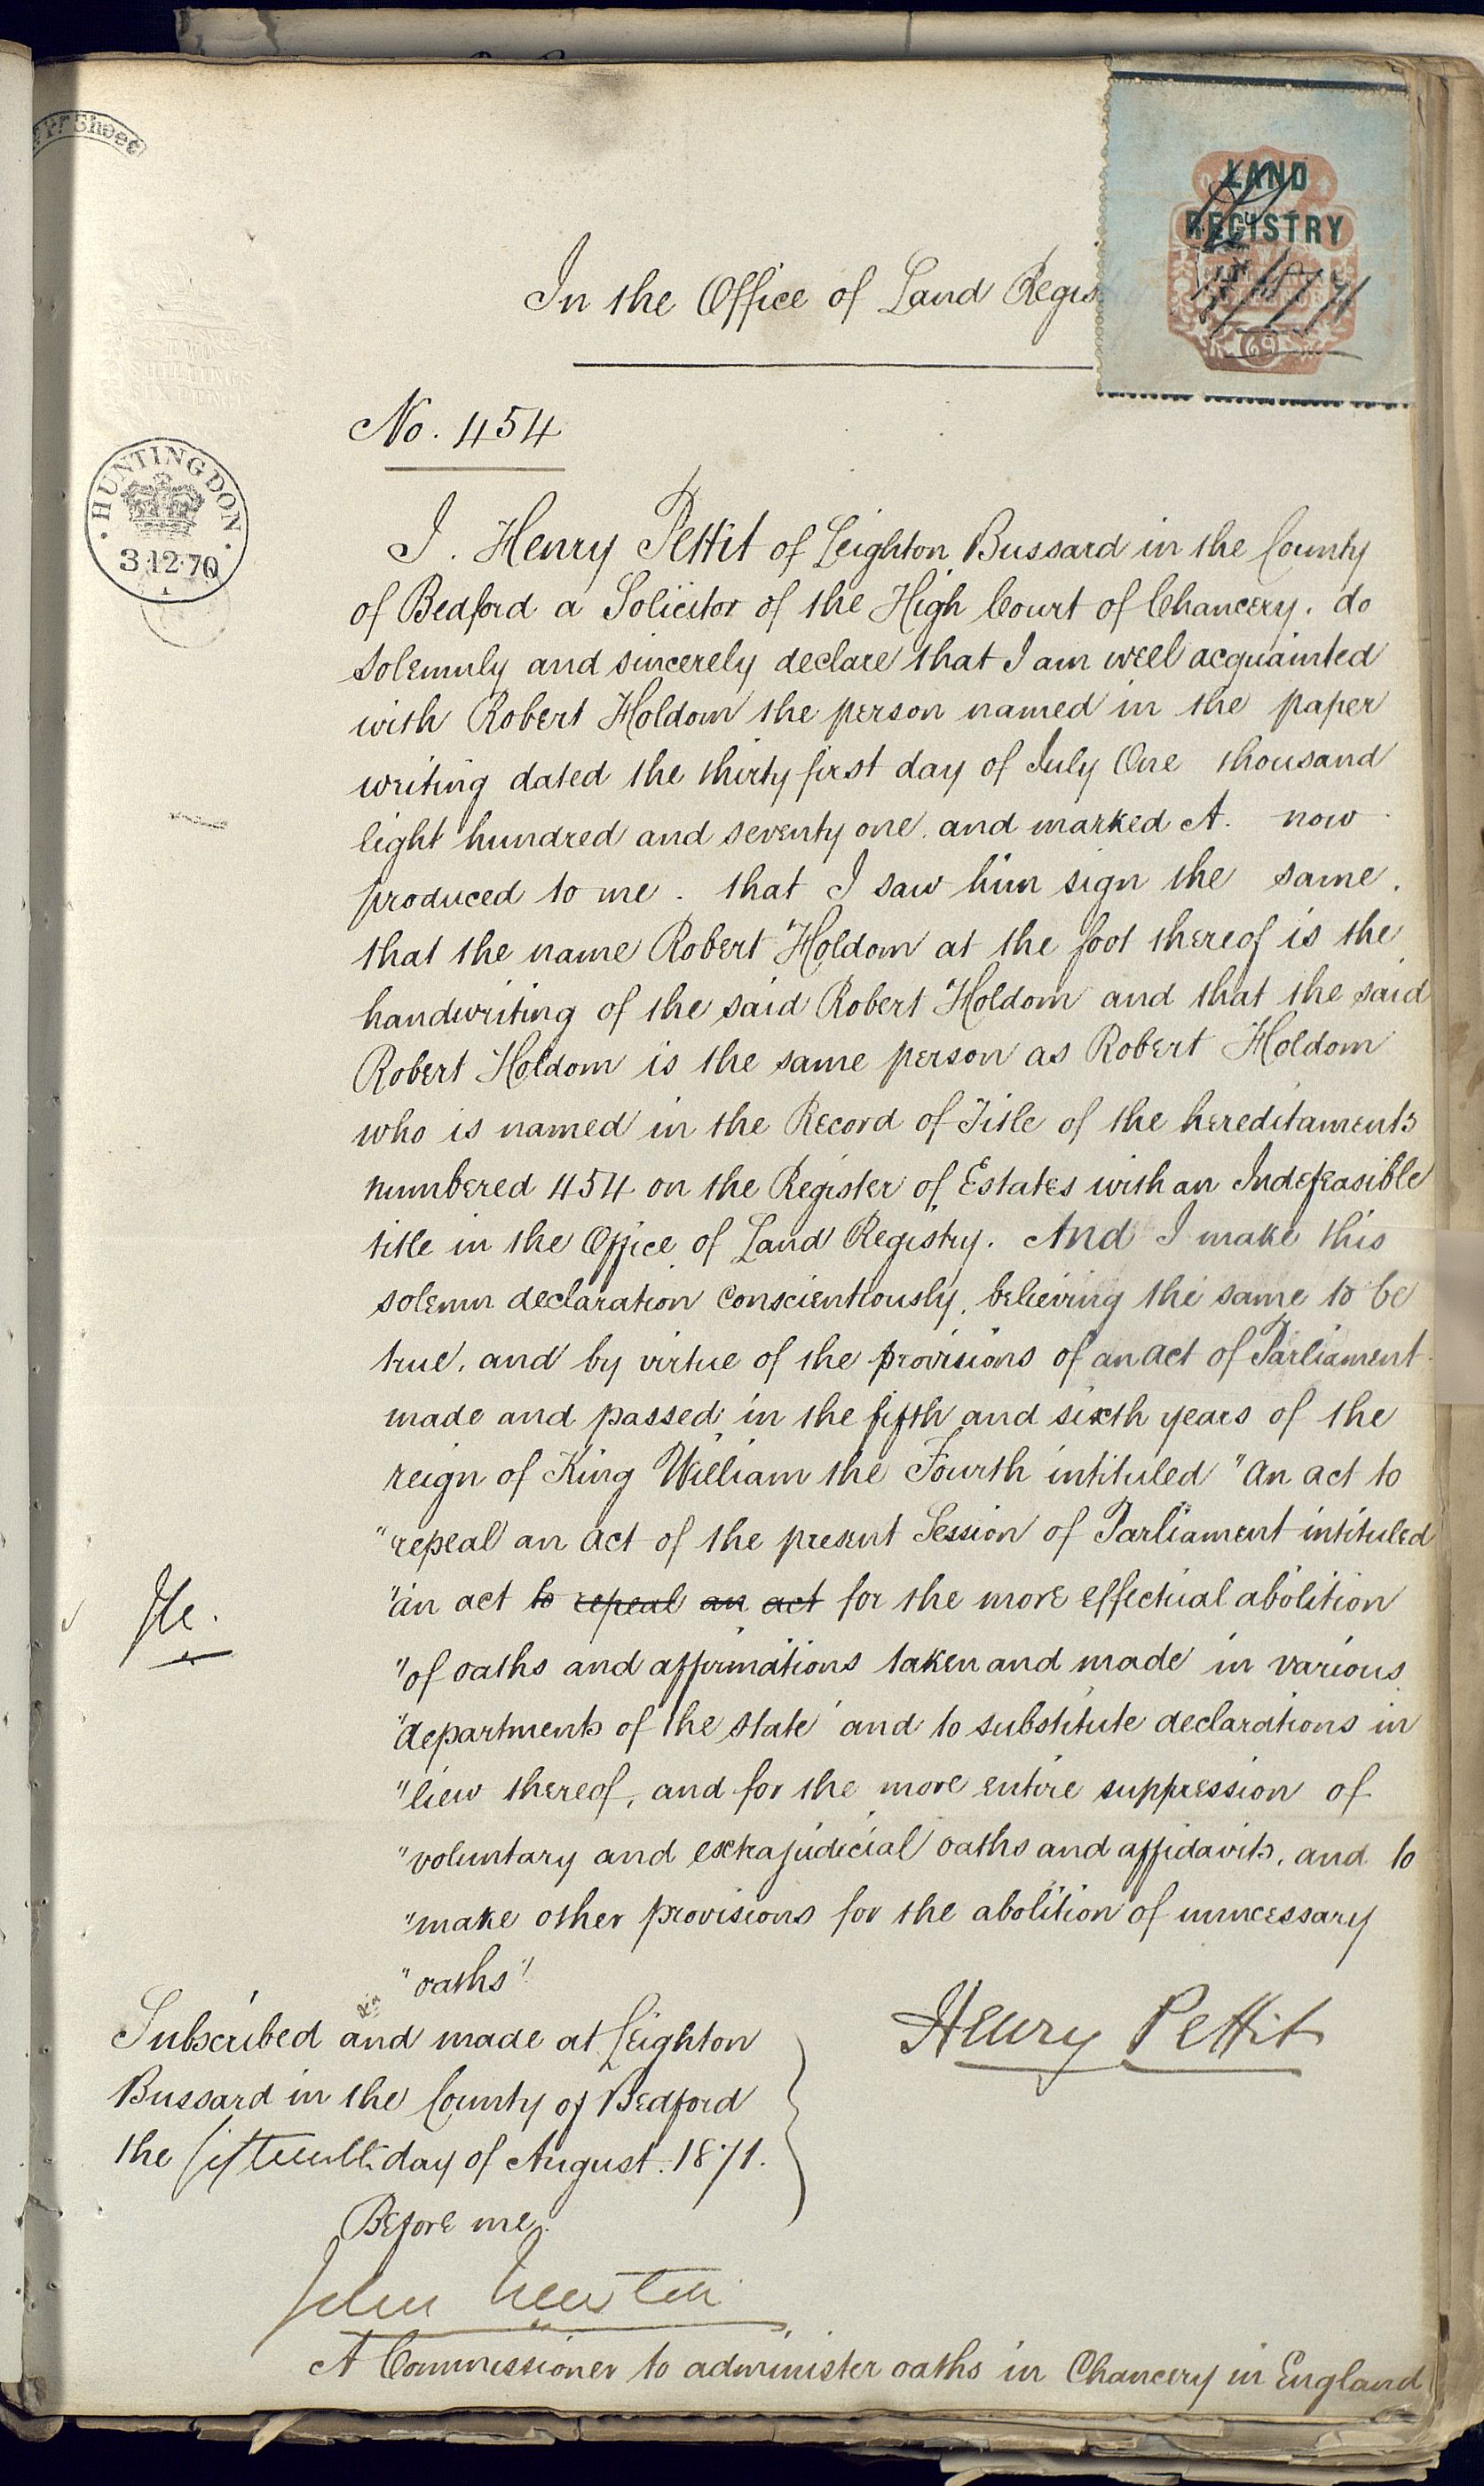 Sheet
LAND
REGISTRY
In the Office of Land Regis
TWO
SHILLINGS
SIXPENCE
No. 454
HUNTINGDON
3·12·70
I. Henry Pettit of Leighton Bussard in the County
of Bedford a Solicitor of the High Court of Chancery. do
solemnly and sincerely declare that I am well acquainted
with Robert Holdom the person named in the paper
writing dated the thirty first day of July One thousand
eight hundred and seventy one. and marked A. now
produced to me. that I saw him sign the same.
that the name Robert Holdom at the foot thereof is the
handwriting of the said Robert Holdom and that the said
Robert Holdom is the same person as Robert Holdom
who is named in the Record of Title of the hereditaments
numbered 454 on the Register of Estates with an Indefeasible
title in the Office of Land Registry. And I make this
solemn declaration conscientiously, believing the same to be
true, and by virtue of the provisions of an act of Parliament
made and passed in the fifth and sixth years of the
reign of King William the Fourth intituled "An act to
"repeal an act of the present Session of Parliament intituled
"an act to repeal an act for the more effectual abolition
"of oaths and affirmations taken and made in various
"departments of the state and to substitute declarations in
"lieu thereof, and for the more entire suppression of
"voluntary and extrajudicial oaths and affidavits, and to
"make other provisions for the abolition of unncessary
"oaths"
Henry Pettit
Subscribed and made at Leighton
Bussard in the County of Bedford
the fifteenth day of August. 1871.
Before me.
John
A Commissioner to administer oaths in Chancery in England